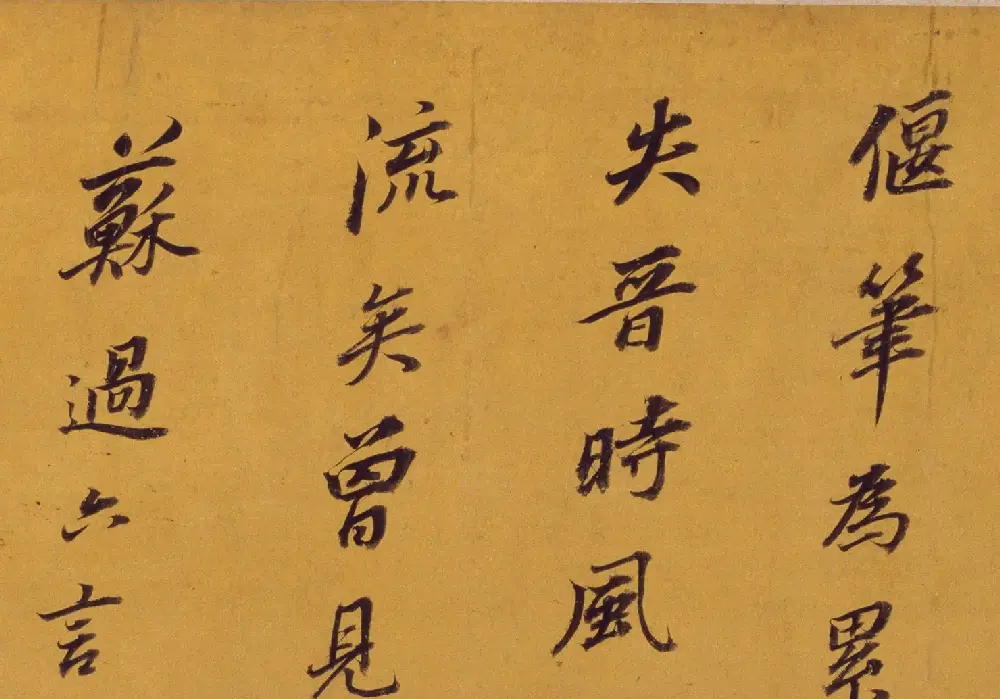 偃筆為累
失晉時風
流矣曾見
蘇過六言